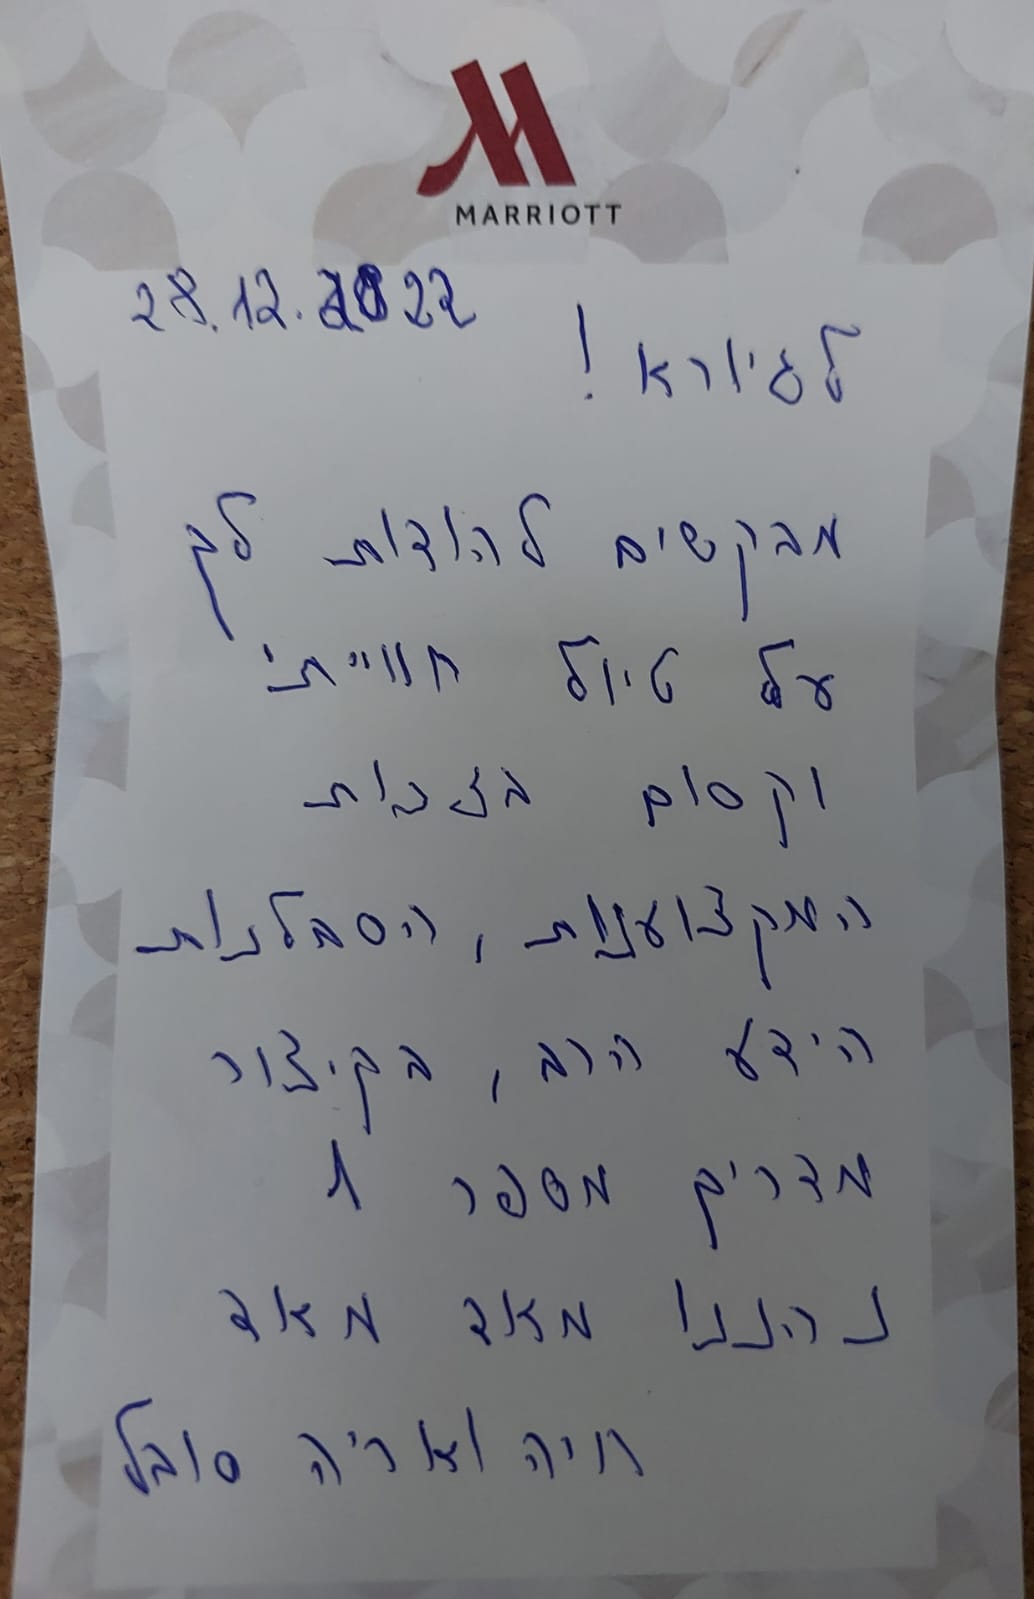 MARRIOTT
28.12.2022
לגיורא!
מבקשים להודות לך
על טיול חווייתי
וקסום בזכות
המקצוענות, הסבלנות
הידע הרב, בקיצור
מדריך מספר 1
נהננו מאד מאד
ואריה סובל